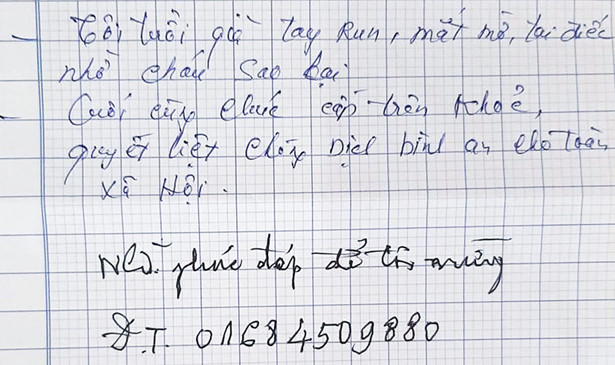 - Tôi tuổi già tay Run, mắt mờ, tai điếc
nhờ cháu sao lại
- Cuối cùng chúc cấp trên khoẻ,
quyết liệt chống Dịch bình an cho toàn
xã Hội.
phúc đáp để tôi mừng
Đ.T. 01684509880